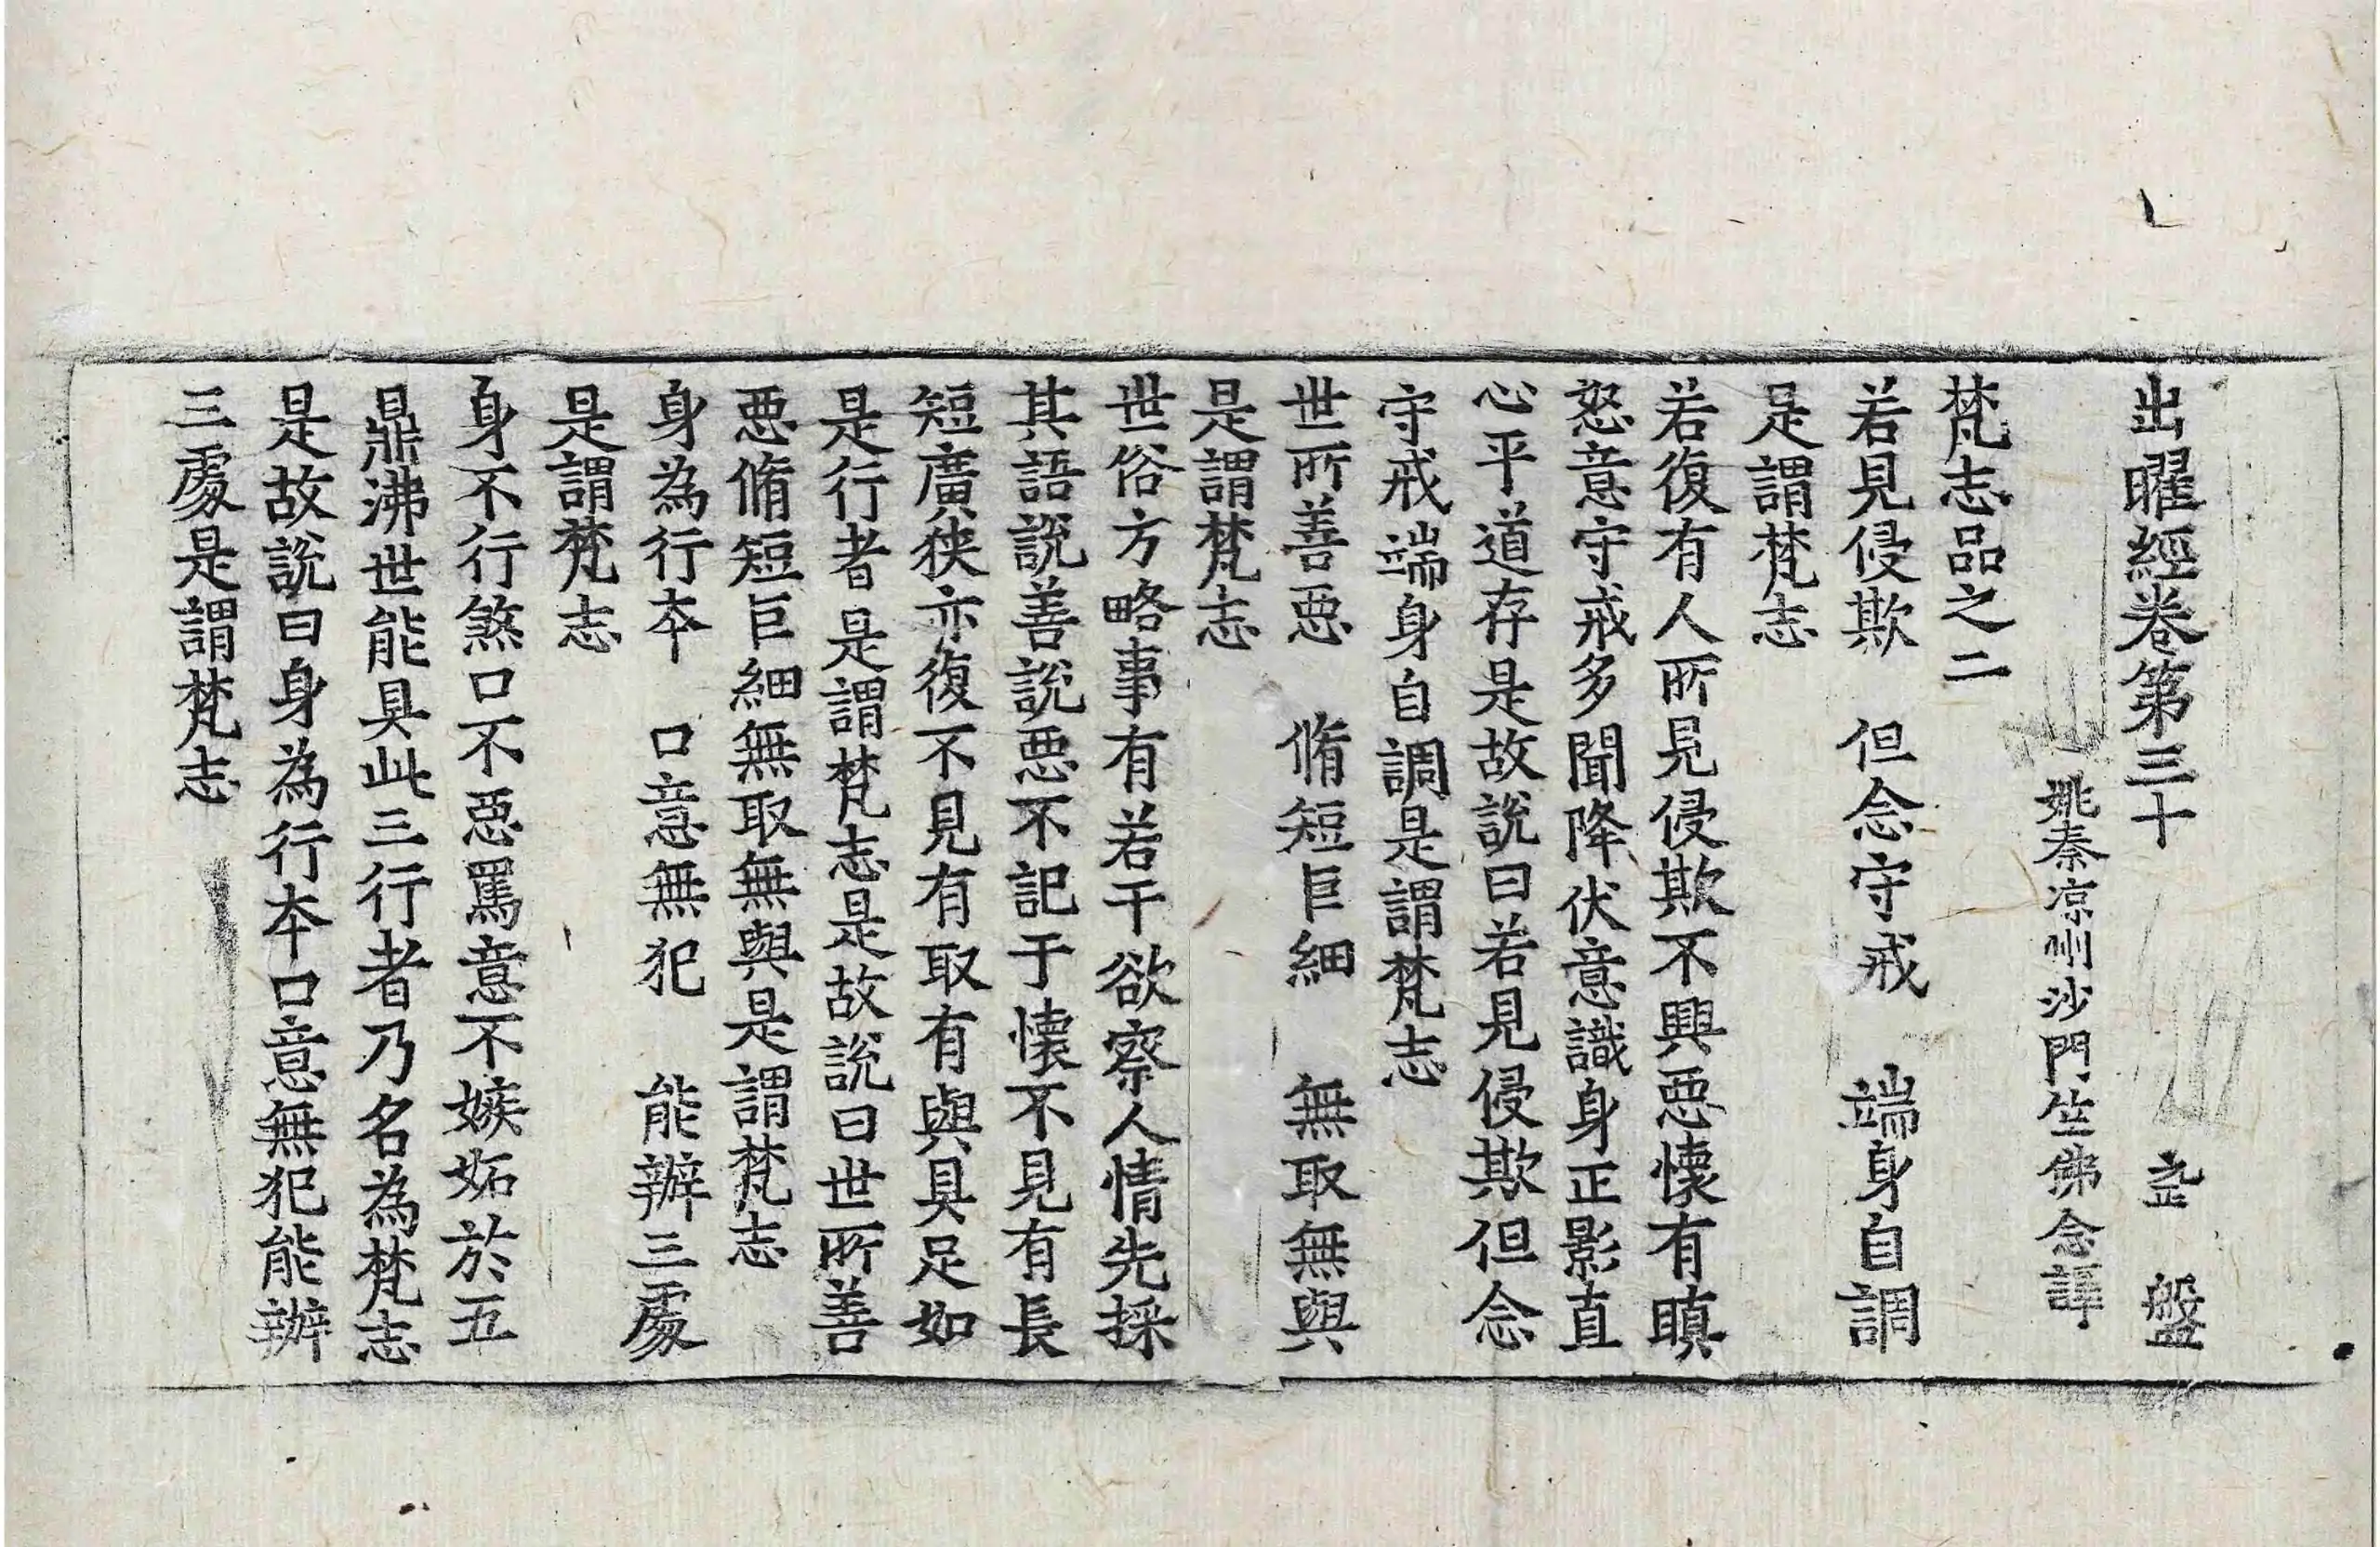 出曜經卷第三十 盤
姚秦涼州沙門竺佛念譯
梵志品之二
若見侵欺 但念守戒 端身自調
是謂梵志
若復有人所見侵欺不興惡懷有瞋
怒意守戒多聞降伏意識身正影直
心平道存是故說曰若見侵欺但念
守戒端身自調是謂梵志
世所善惡 脩短巨細 無取無與
是謂梵志
世俗方略事有若干欲察人情先採
其語說善說惡不記于懷不見有長
短廣狹亦復不見有取有與具足如
是行者是謂梵志是故說曰世所善
惡脩短巨細無取無與是謂梵志
身為行本 口意無犯 能辦三處
是謂梵志
身不行煞口不惡罵意不嫉妬於五
鼎沸世能具此三行者乃名為梵志
是故說曰身為行本口意無犯能辦
三處是謂梵志